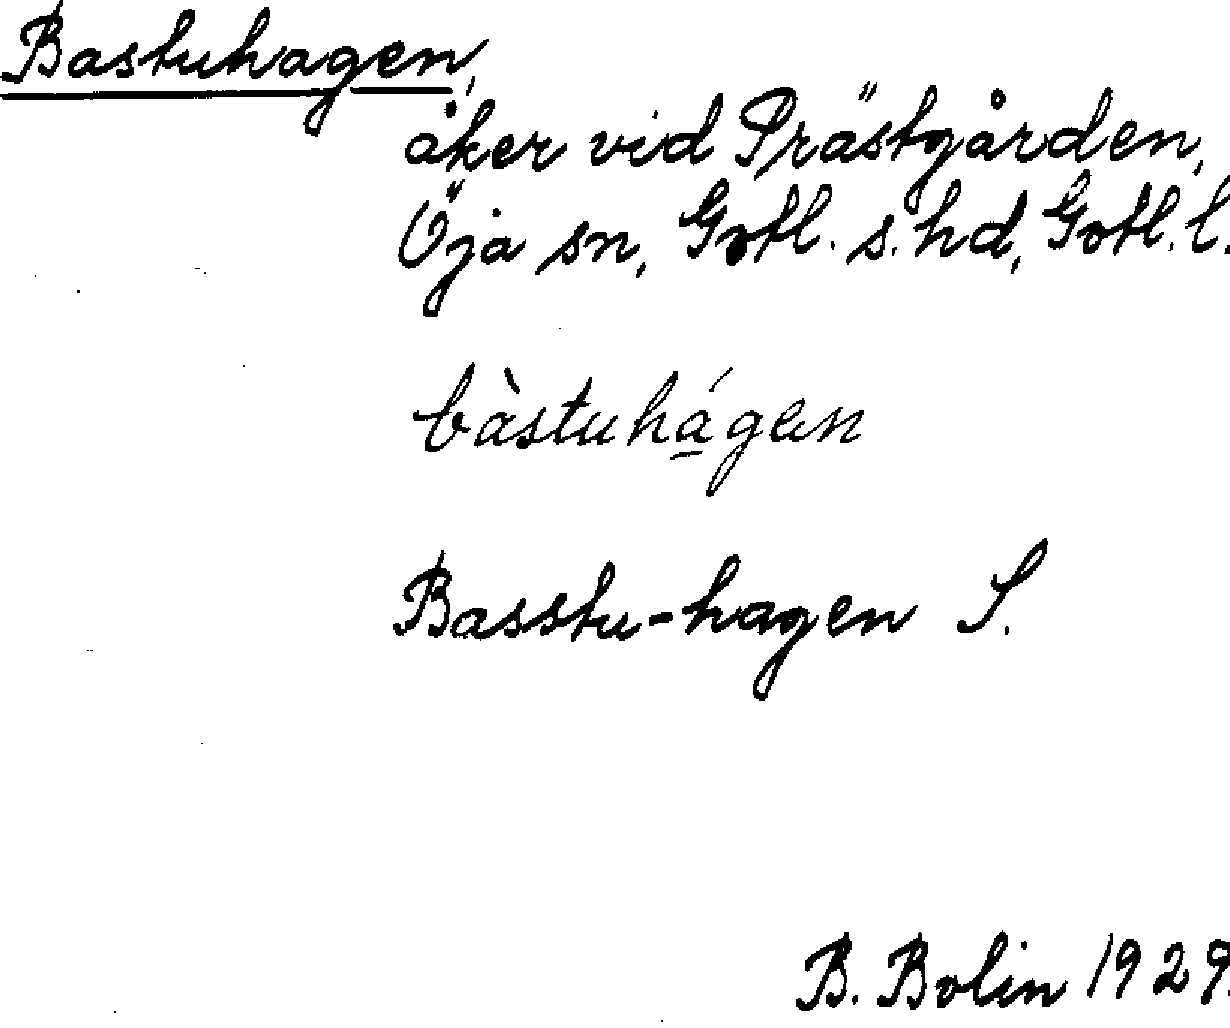 Bastuhagen,
åker vid Prästgården,
Öja sn, Gotl. s. hd, Gotl. l.
bàstuhá̱gen
Basstu-hagen S.
B. Bolin 1929.